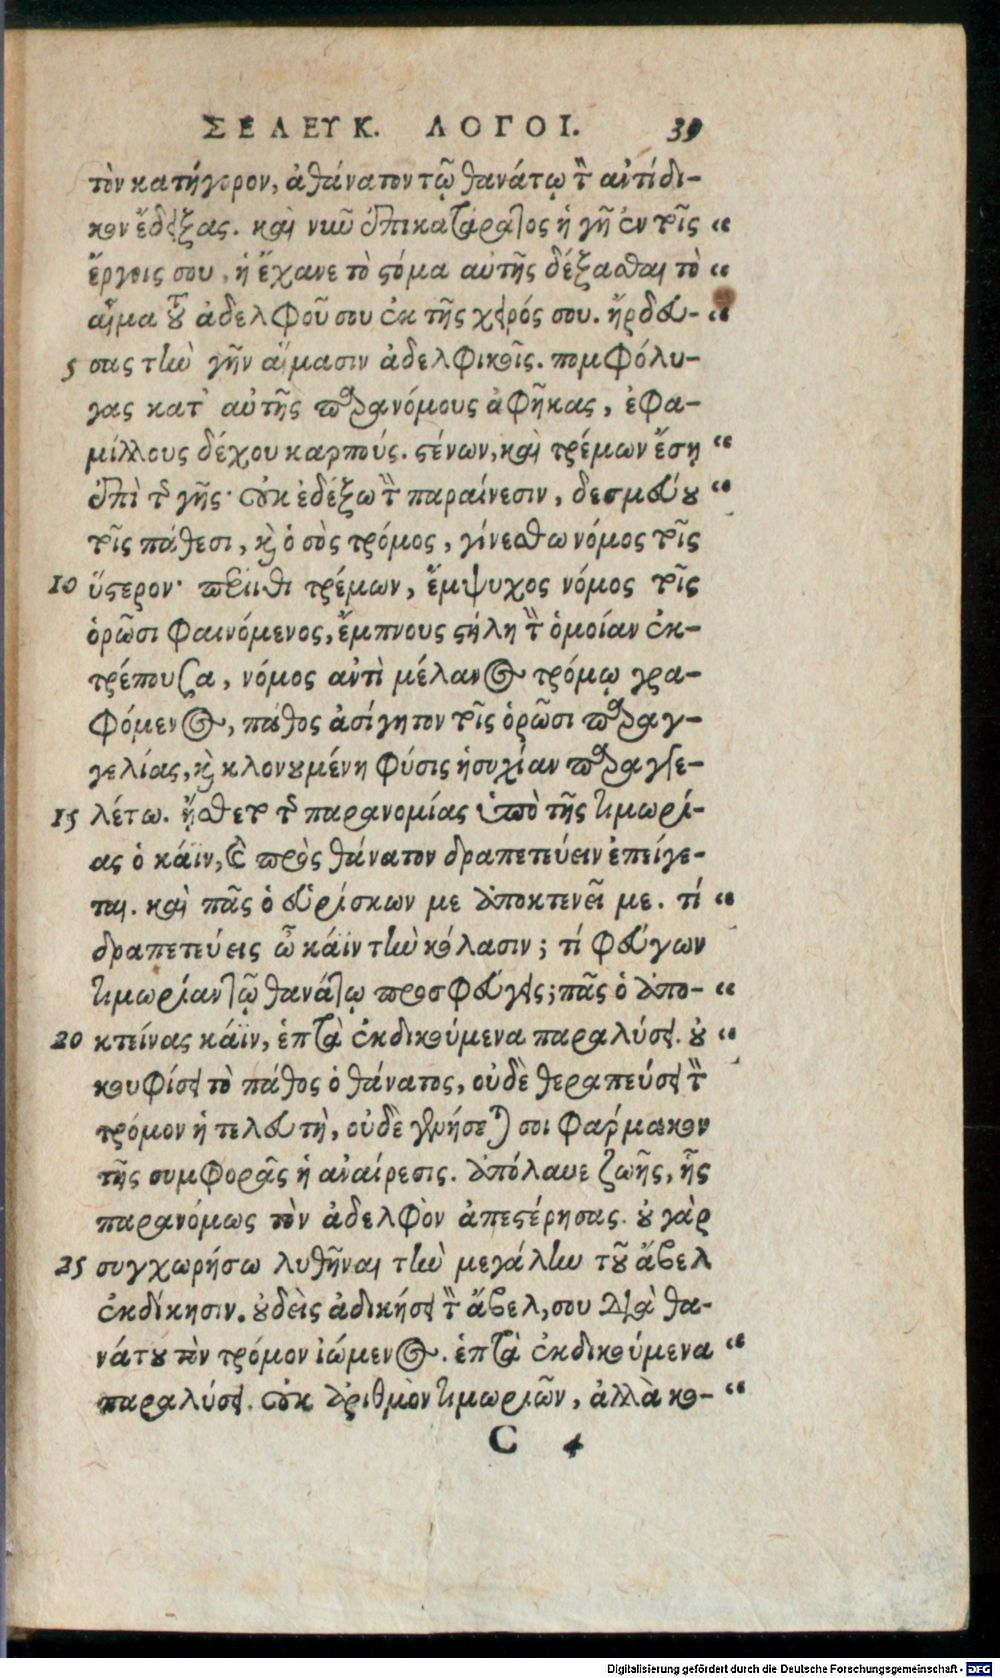 ΣΕΛΕΥΚ. ΛΟΓΟΙ. 39
τὸν κατήγορον, ἀθάνατον τῷ θανάτῳ τὸν ἀντίδι-
κον ἔδειξας. καὶ νῦν ἐπικατάρατος ἡ γῆ ἐν τοῖς “
ἔργοις σου, ἡ ἔχανε τὸ στόμα αὐτῆς δέξασθαι τὸ “
αἷμα τοῦ ἀδελφοῦ σου ἐκ τῆς χειρός σου. ἤρδευ- “
5 σας τὴν γῆν αἵμασιν ἀδελφικοῖς. πομφόλυ-
γας κατ' αὐτῆς παρανόμους ἀφῆκας, ἐφα-
μίλλους δέχου καρπούς. στένων, καὶ τρέμων ἔσῃ “
ἐπὶ τῆς γῆς· οὐκ ἐδέξω τὴν παραίνεσιν, δεσμεύου “
τοῖς πάθεσι, καὶ ὁ σὸς τρόμος, γίνεσθω νόμος τοῖς
10 ὕστερον· περίιθι τρέμων, ἔμψυχος νόμος τοῖς
ὁρῶσι φαινόμενος, ἔμπνους στήλη τὴν ὁμοίαν ἐκ-
τρέπουσα, νόμος ἀντὶ μέλανος τρόμῳ γρα-
φόμενος, πάθος ἀσίγητον τοῖς ὁρῶσι παραγ-
γελίας, καὶ κλονουμένη φύσις ἡσυχίαν παραγγε-
15 λέτω. ᾔσθετο τῆς παρανομίας ὑπὸ τῆς τιμωρί-
ας ὁ κάϊν, καὶ πρὸς θάνατον δραπετεύειν ἐπείγε-
ται. καὶ πᾶς ὁ εὑρίσκων με ἀποκτενεῖ με. τί “
δραπετεύεις ὦ κάϊν τὴν κόλασιν; τί φεύγων
τιμωρίαν τῷ θανάτῳ προσφεύγεις; πᾶς ὁ ἀπο- “
20 κτείνας κάϊν, ἑπτὰ ἐκδικούμενα παραλύσει. οὐ “
κουφίσει τὸ πάθος ὁ θάνατος, οὐδὲ θεραπεύσει τὸν
τρόμον ἡ τελευτὴ, οὐδὲ γενήσεται σοι φάρμακον
τῆς συμφορᾶς ἡ ἀναίρεσις. ἀπόλαυε ζωῆς, ἧς
παρανόμως τὸν ἀδελφὸν ἀπεστέρησας. οὐ γὰρ
25 συγχωρήσω λυθῆναι τὴν μεγάλην τοῦ ἄβελ
ἐκδίκησιν. οὐδεὶς ἀδικήσει τὸν ἄβελ, σου διὰ θα-
νάτου τὸν τρόμον ἰώμενος. ἑπτὰ ἐκδικούμενα “
παραλύσει. οὐκ ἀριθμὸν τιμωριῶν, ἀλλὰ κο- “
C 4
Digitalisierung gefördert durch die Deutsche Forschungsgemeinschaft - DFG